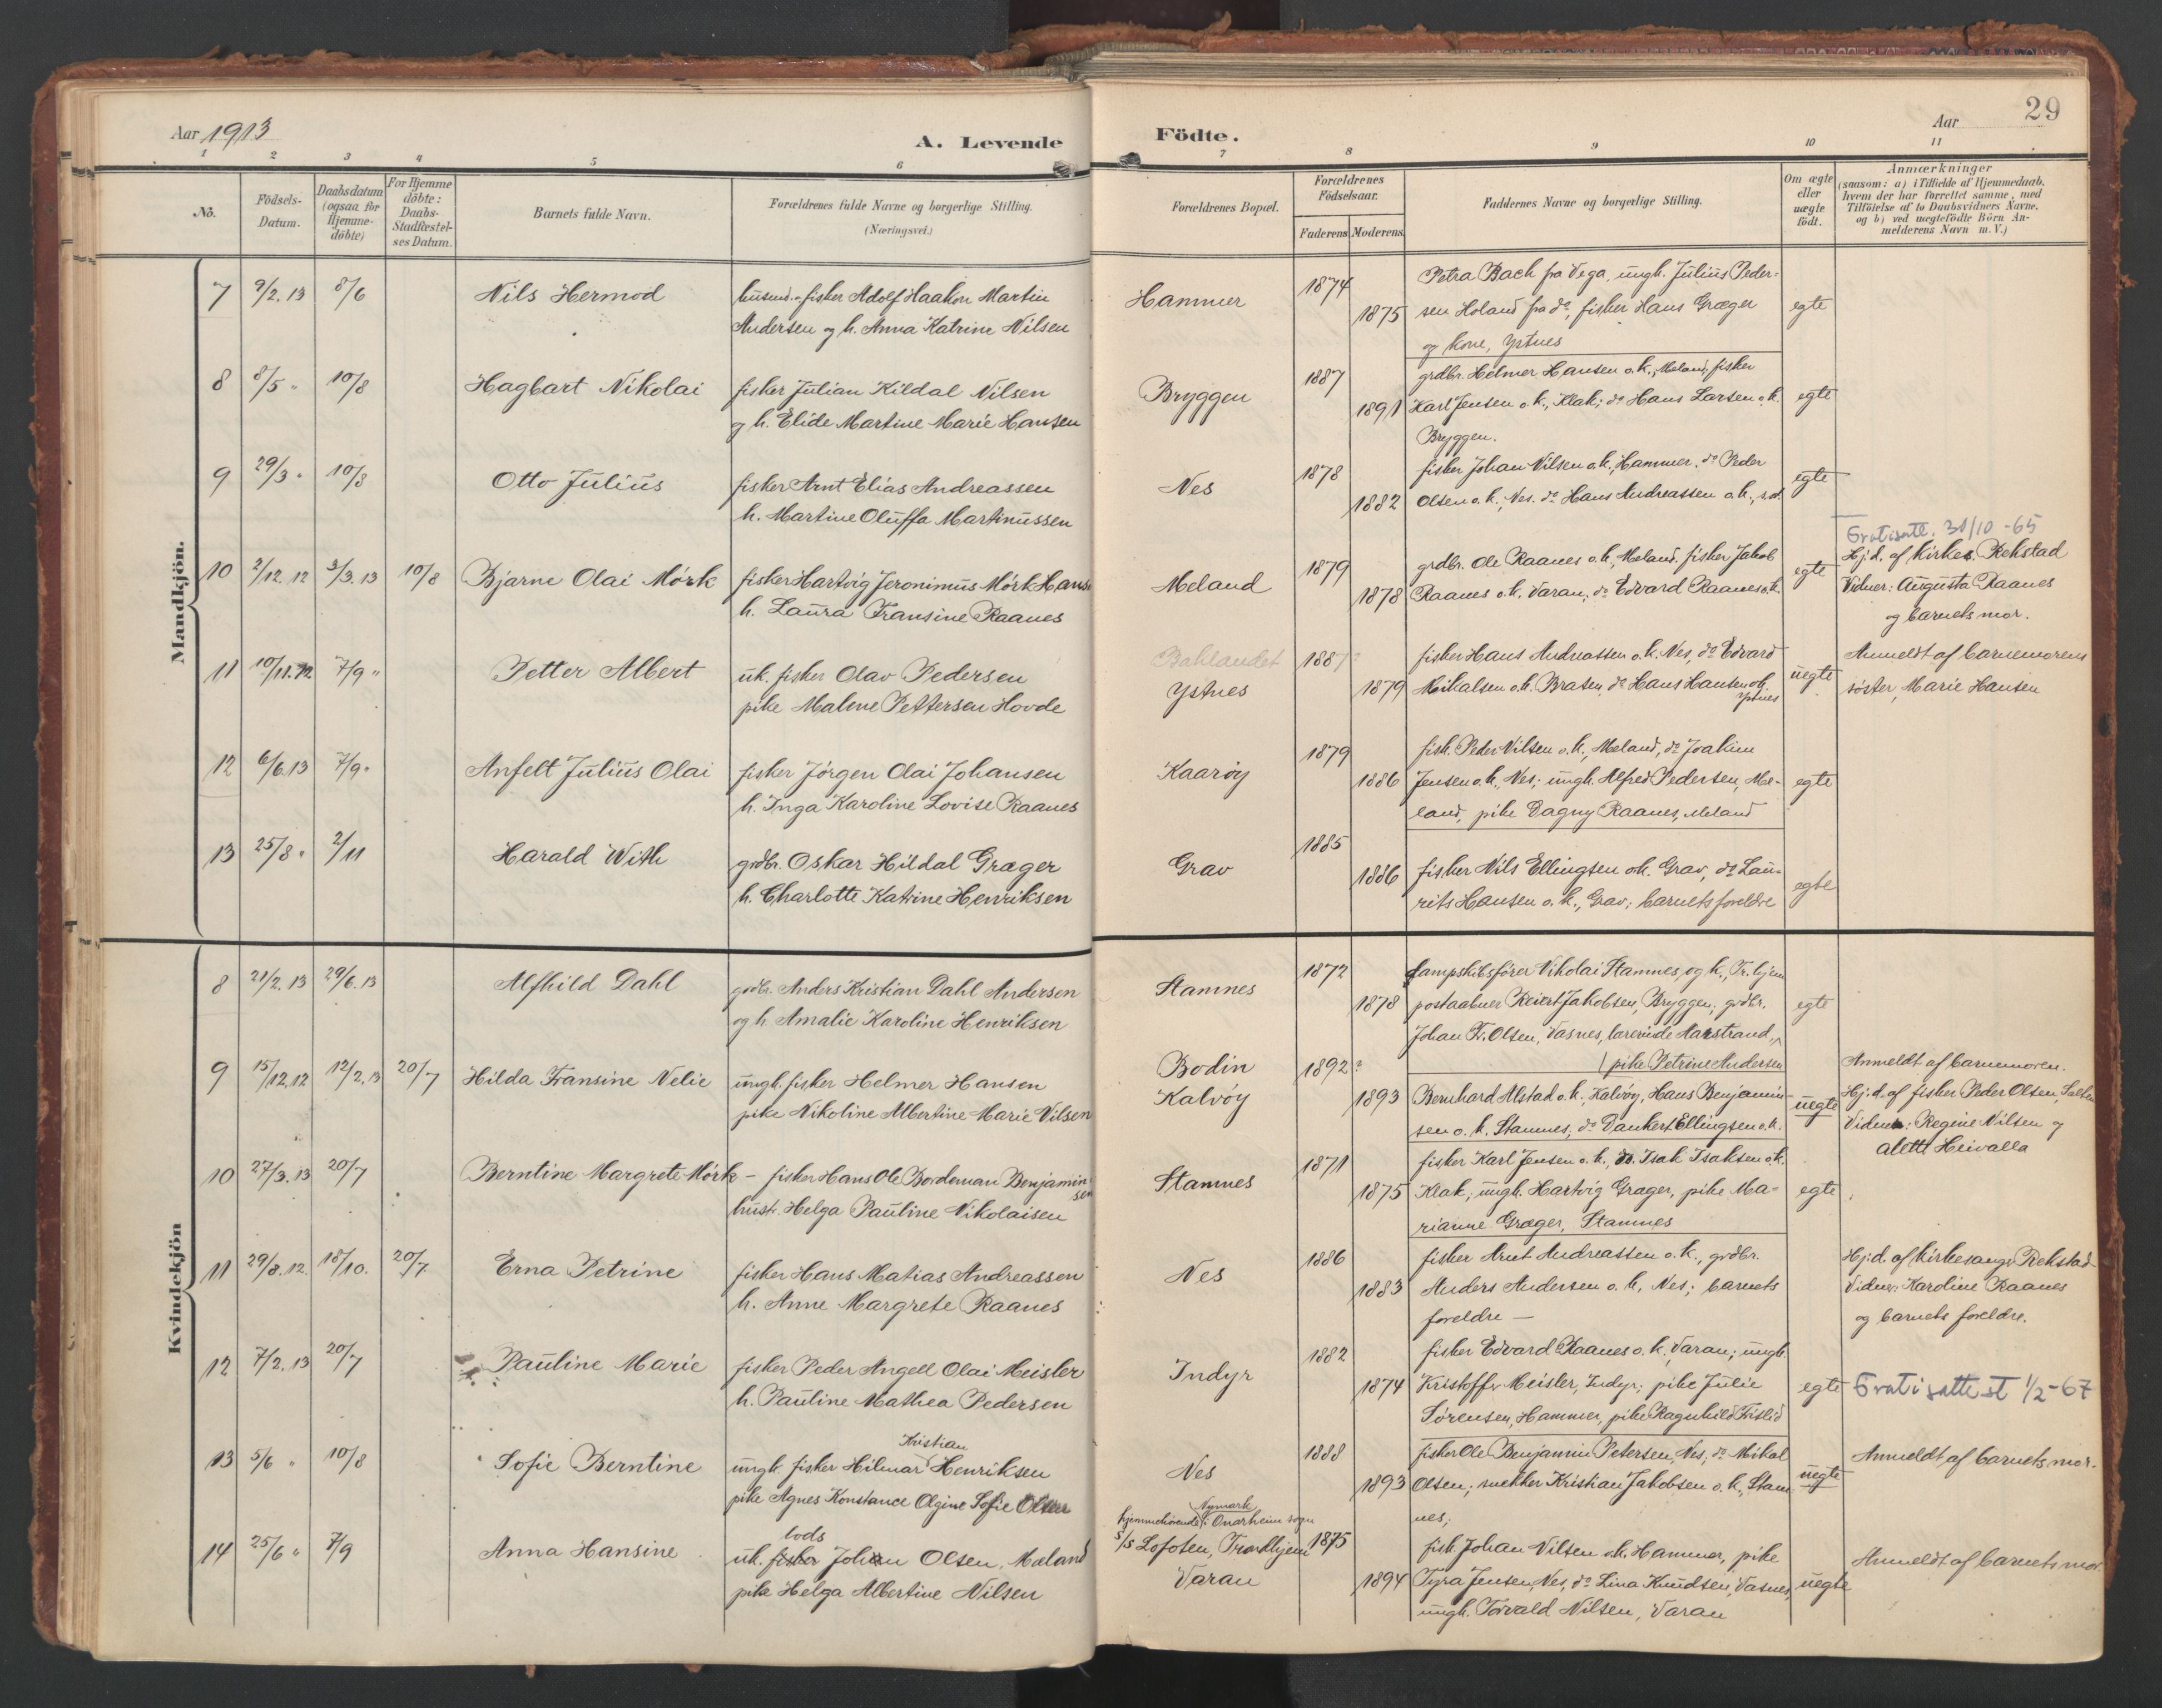 29
Aar 1913
A. Levende Födte.
Aar
1 2 3 4 5 6 7 8 9 10 11
No.
Födsels-Datum.
Daabsdatum (ogsaa for Hjemme-döbte)
For Hjemme döbte: Daabs-Stadfæstel-ses Datum.
Barnets fulde Navn.
Forældrenes fulde Navne og borgerlige Stilling. (Næringsvei.)
Forældrenes Bopæl.
Forældrenes Födselsaar.
Faderens Moderens
Faddernes Navne og borgerlige Stilling.
Om ægte eller uægte födt.
Anmærkninger
(saasom: a) i Tilfælde af Hjemmedaab,
hvem der har forrettet samme, med
Tilföielse af to Daabsvidners Navne,
og b) ved uægtefödte Börn An-
melderens Navn m. V.)
Mandkjön.
7 9/2.13 8/6 Nils Hermod
husmd. o. fisker Adolf Haakon Martin
Andersen og h. Anna Katrine Nilsen
Hammer 1874 1875
Petra Bach fra Vega, ungk. Julius Peder-
sen Holand fra do, fisker Hans Græger
og kone, Ystnes
egte
8 8/5 " 10/8 Hagbart Nikolai
fisker Julian Kildal Nilsen
og h. Elide Martine Marie Hansen
Bryggen 1887 1891
grdbr. Helmer Hansen o.k., Meland, fisker
Karl Jensen o.k., Klak; do Hans Larsen o.k.
Bryggen.
egte
9 29/3 " 10/8 Otto Julius
fisker Arnt Elias Andreassen
h. Martine Oluffa Martinussen
Nes 1878 1882
fisker Johan Nilsen o.k., Hammer. do Peder
Olsen o.k., Nes. do Hans Andreassen o.k., sst.
egte
10 2/12.12 3/3.13 10/8 Bjarne Olai Mörk
fisker Hartvig Jeronimus Mörk Hans
h. Laura Fransine Raanes
Meland 1879 1878
grdbr. Ole Raanes o.k., Meland, fisker Jakob
Raanes o.k. Varan; do Edvard Raanes o.k.
egte
Gratisatt. 31/10-65
Hj.d. af kirkes. Rekstad
Vidner: Augusta Raanes
og barnets mor.
11 10/11.12 7/9 " Petter Albert
uk. fisker Olav Pedersen
pike Malene Pettersen Hovde
Bahlandet
Ystnes 1887? 1879
fisker Hans Andreassen o.k. Nes, do Edvard
Mikalsen o.k. Braten, do Hans Hansen o.k.
Ystnes
uegte
Anmeldt af barnemorens
söster, Marie Hansen
12 6/6.13 7/9 " Anfelt Julius Olai
fisker Jörgen Olai Johansen
h. Inga Karoline Lovise Raanes
Kaaröy 1879 1886
fisk. Peder Nilsen o.k., Meland, do Joakim
Jensen o.k., Nes; ungk. Alfred Pedersen, Me-
land, pike Dagny Raanes, Meland
egte
13 25/8 " 2/11 Harald With
grdbr. Oskar Hildal Græger
h. Charlotte Katrine Henriksen
Grav 1885 1886
fisker Nils Ellingsen o.k. Grav, do Lau-
rits Hansen o.k., Grav; barnets foreldre
egte
Kvindekjön
8 21/2.13 29/6.13 Alfhild Dahl
grdbr. Anders Kristian Dahl Andersen
og h. Amalie Karoline Henriksen
Stamnes 1872 1878
dampskibsförer Nikolai Stamnes, og k., Tr.hjem
postaabner Reiert Jakobsen, Bryggen, grdbr.
Johan Fr. Olsen, Vasnes, lærerinde Harstrand,
pike Petrine Andersen
egte
9 15/12.12 12/2.13 20/7 Hilda Fransine Nelie
ungk. fisker Helmer Hansen
pike Nikoline Albertine Marie Nilsen
Bodin
Kalvöy 1892? 1893
Bernhard Alstad o.k., Kalvöy, Hans Benjamin-
sen o.k. Stamnes; do Dankert Ellingsen o.k.
uegte
Anmeldt af barnemoren.
Hj.d. af fisker Peder Olsen, Salten
Vidner: Regine Nilsen og
Alette Heivalla
10 27/3.13 20/7 Berntine Margrete Mörk –
fisker Hans Ole Bordeman Benjamin-
sen
hustr. Helga Pauline Nikolaisen
Stamnes 1871 1875
fisker Karl Jensen o.k., do. Isak Isaksen o.k.
Klak, ungk. Hartvig Græger, pike Ma-
rianne Græger, Stamnes
egte
11 29/8.12. 18/10. 20/7 Erna Petrine
fisker Hans Matias Andreassen
h. Anne Margrete Raanes
Nes 1886 1883
fisker Arnt Andreassen o.k., grdbr.
Anders Andersen o.k, Nes; barnets
foreldre –
Hj.d. af kirkesanger Rekstad
Vidner: Karoline Raanes
og barnets foreldre.
12 7/2.13 20/7 Pauline Marie
fisker Peder Angell Olai Meisler
h. Pauline Mathea Pedersen
Indyr 1882 1874
fisker Edvard Raanes o.k. Varan; ungk.
Kristoffer Meisler, Indyr; pike Julie
Sörensen, Hammer, pike Ragnhild Fislid
egte
Gratisattest 1/2-67
13 5/6 " 10/8 Sofie Berntine
Kristian
ungk. fisker Hilmar Henriksen
pike Agnes Konstance Olgine Sofie Olsen
Nes 1888 1893
fisker Ole Benjamin Petersen, Nes, do Mikal
Olsen; snekker Kristian Jakobsen o.k., Stam
nes;
uegte
Anmeldt af barnets mor.
14 25/6 " 7/9 Anna Hansine
lods
uk. fisker Johan Olsen, Meland
pike Helga Albertine Nilsen
Nymark
hjemmehörende i Onarheim sogn
S/S Lofoten, Trondhjem
Varan 1875 1894
fisk. Johan Nilsen o.k. Hammer, pike
Tyra Jensen, Nes, do Lina Knudsen, Vasnes,
ungk. Torvald Nilsen, Varan
uegte
Anmeldt af barnets mor